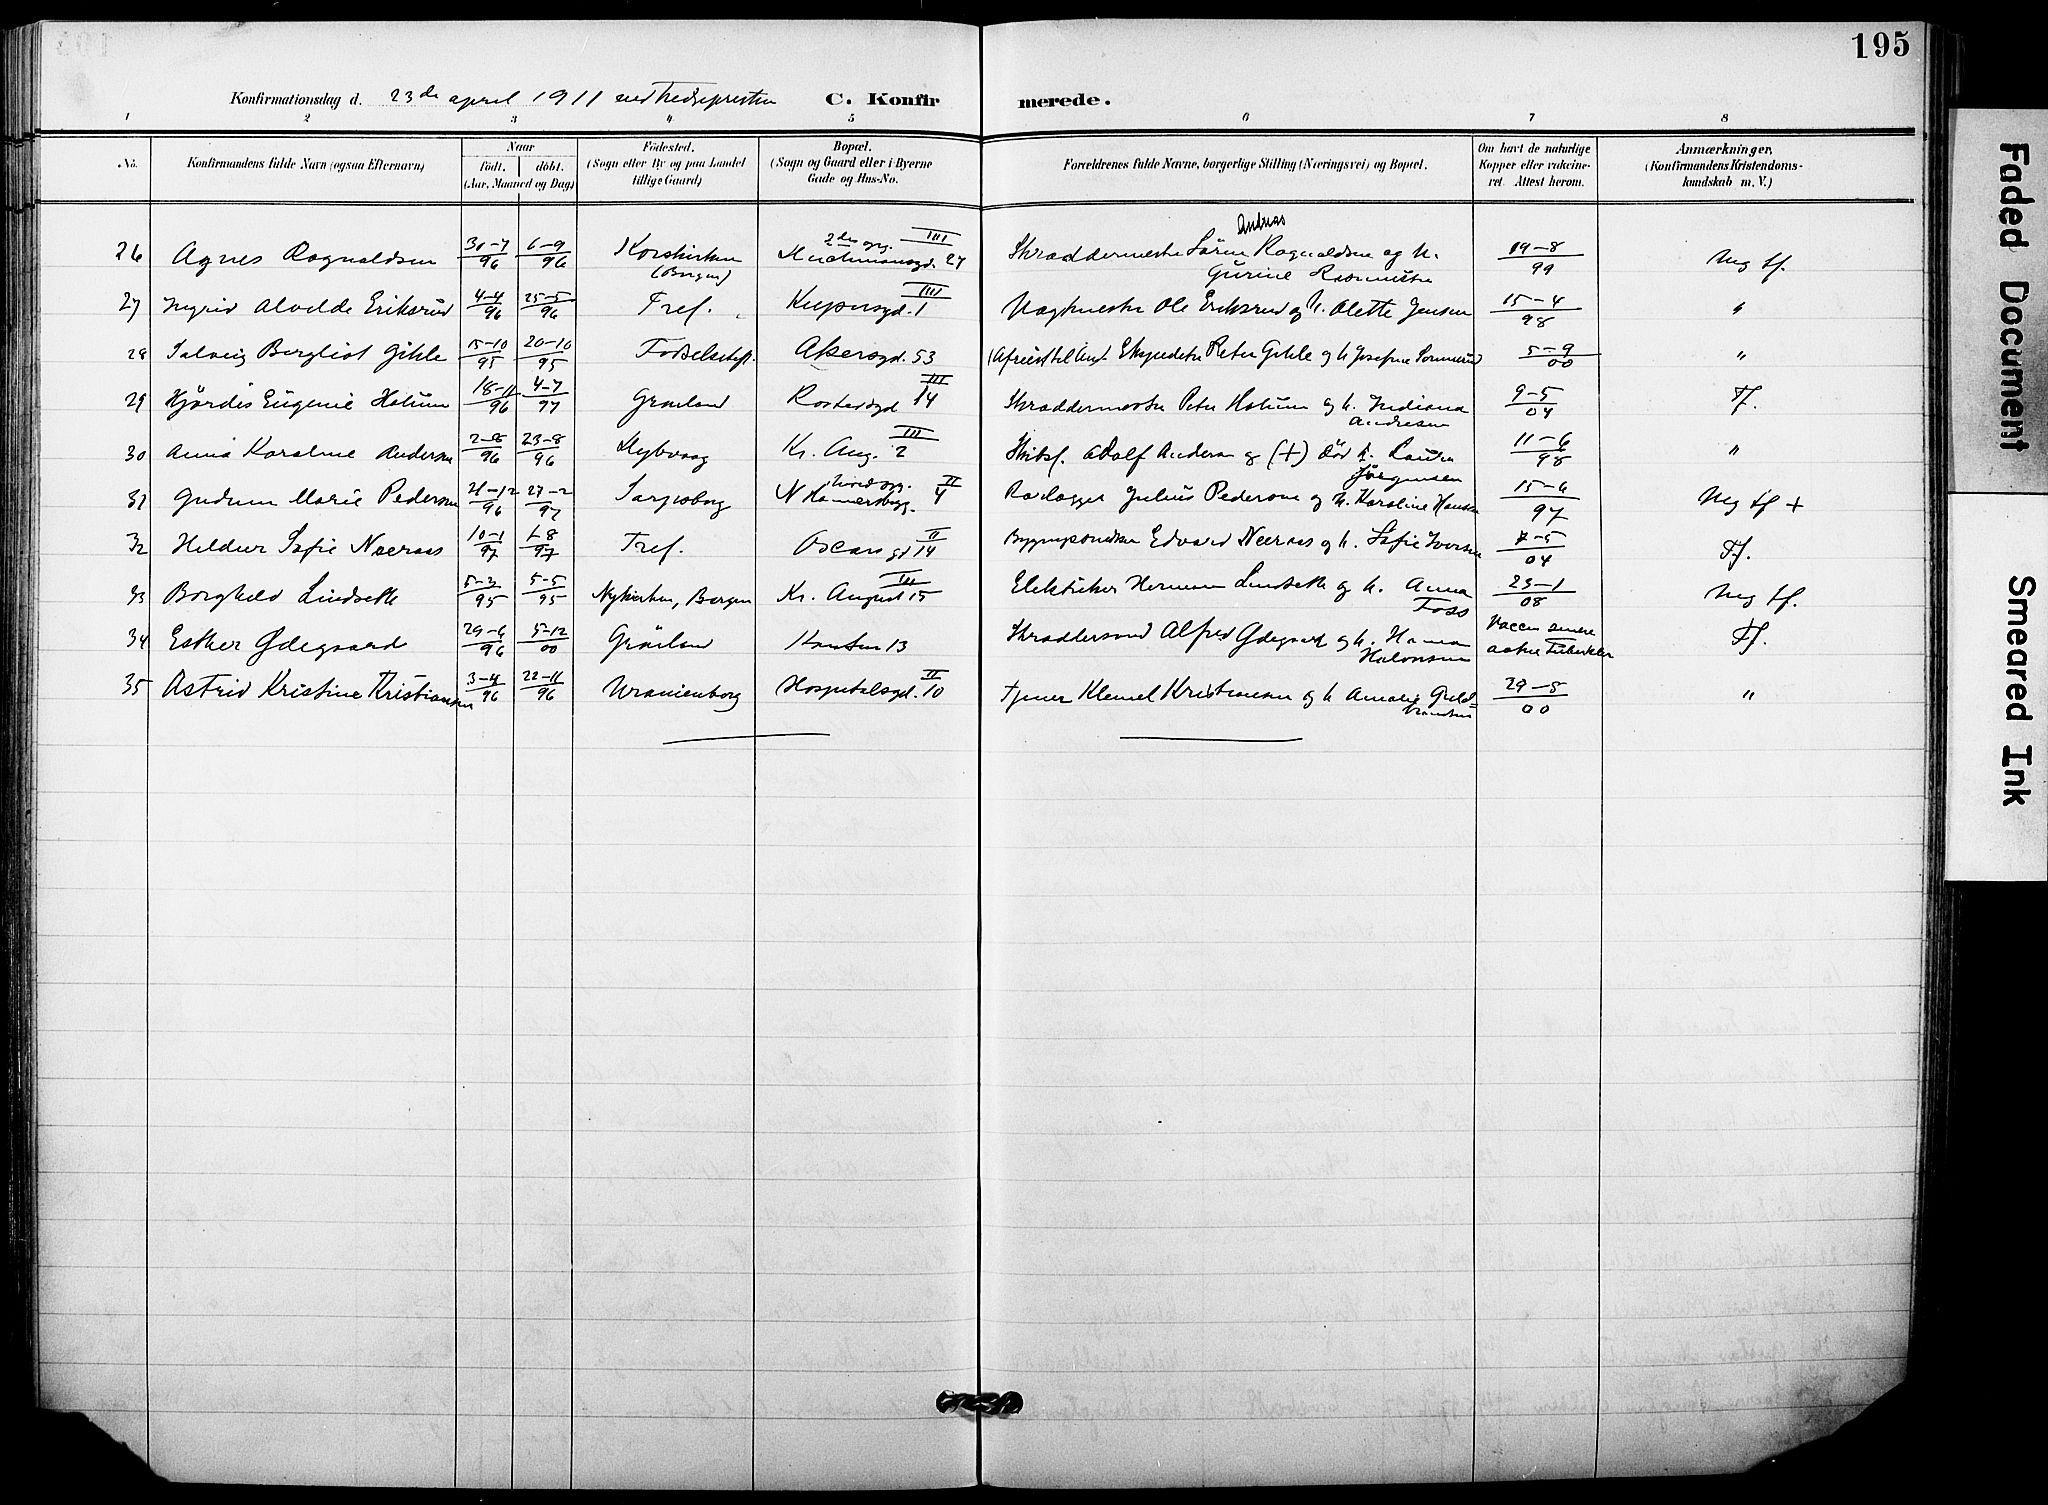 195
Konfirmationsdag d. 23de april 1911 C. Konfirmerede.
1 2 3 4 5 6 7 8
No. Konfirmandens fulde Navn (ogsaa Efternavn) Naar født. døbt. (Aar, Maaned og Dag) Fødested. (Sogn eller By og paa Landet tillige Gaard) Bopæl. (Sogn og Gaard eller i Byerne Gade og Hus-No. Forældrenes fulde Navne, borgerlige Stilling (Næringsvei) og Bopæl. Om havt de naturlige Kopper eller vakcineret. Attest herom. Anmærkninger, (Konfirmandens Kristendomskundskab m. V.)
Andreas
26 Agnes Ragnvaldsen 30-7/96 6-9/96 Korskirken (Bergen) III 27 Skræddermester Søren Ragnvaldsen og h. Gurine Rasmussen 19-8/99 Mg tf.
27 Ingrid Alvilde Eriksrud 4-4/96 25-5/96 Tref. III 1 Vagtmester Ole Eriksrud og h. Olette Jensen 15-4/98 "
28 Solveig Bergliot Gihle 15-10/95 20-10/95 Fødselsstift. Akersgd. 53 Peter Gihle og h Josefine 5-9/00 "
29 Hjørdis Eugenie Holum 18-11/96 4-7/97 Grønland III 14 Skræddermester Peter Holum og h. Indiana Andresen 9-5/04 Tf.
30 Anna Karoline Andersen 2-8/96 23-8/96 Dybvaag Kr. Aug. III 2 Adolf Andersen og (+) død h. Laura Jørgensen 11-6/98 "
31 Gudrun Marie Pedersen 21-12/96 27-2/97 Sarpsborg N Hammersbgg. II 4 Julius Pedersen og h. Karoline Hansen 15-6/97 Mg tf +
32 Hildur Sofie Neeraas 10-1/97 1-8/97 Tref. Oscars gd II 14 Edvard Neeraas og h. Sofie Iversen 7-5/04 Tf.
33 Borghild Lindseth 5-2/95 5-5/95 Nykirken, Bergen Kr. August III 15 Elektriker Herman Lindseth og h. Anna Foss 23-1/08 Mg tf.
34 Esther Ødegaard 29-6/96 5-12/00 Grønland 13 Skræddersvend Alfred Ødegaard og h. Halvorsen Tf.
35 Astrid Kristine Kristiansen 3-4/96 22-11/96 Uranienborg Hospitalsgd. II 10 Tjener Klemet Kristiansen og h Amalie Guldbrandsen 29-5/00 "
Faded Document
Smeared Ink